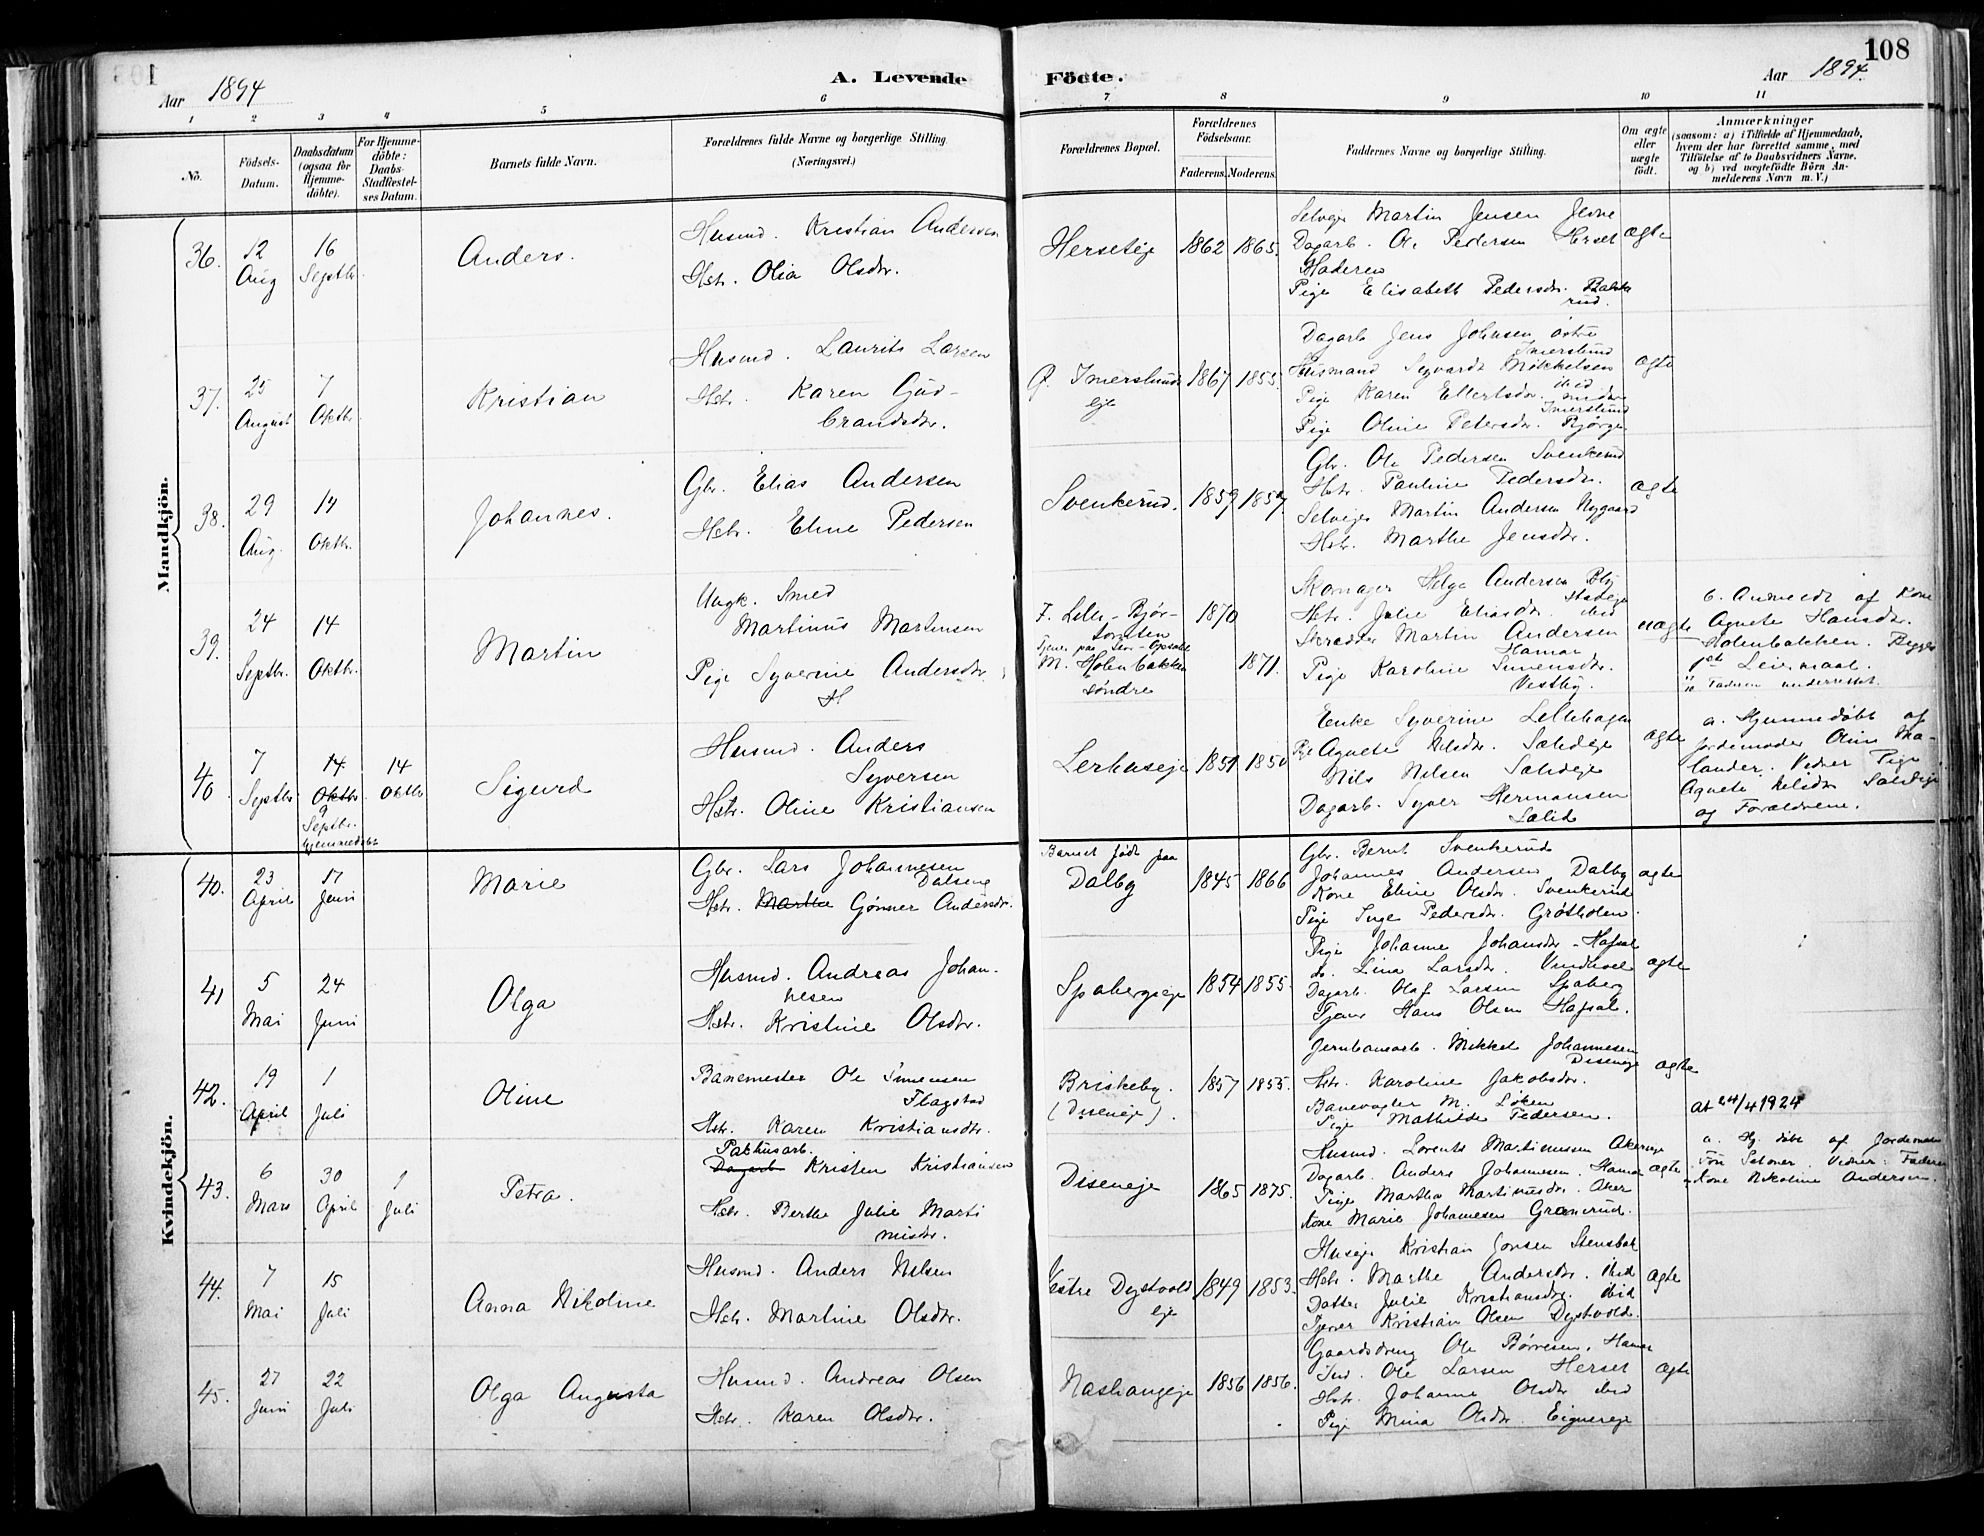 108
Aar 1894
A. Levende Födte.
Aar 1894.
1 2 3 4 5 6 7 8 9 10 11
No.
Födsels-
Datum.
Daabsdatum
(ogsaa for
Hjemme-
döbte).
For Hjemme-
döbte:
Daabs-
Stadfæstel-
ses Datum.
Barnets fulde Navn.
Forældrenes fulde Navne og borgerlige Stilling.
(Næringsvei.)
Forældrenes Bopæl.
Forældrenes
Födselsaar.
Faderens. Moderens.
Faddernes Navne og borgerlige Stilling.
Om ægte
eller
uægte
födt.
Anmærkninger
(saasom: a) i Tilfælde af Hjemmedaab,
hvem der har forrettet samme, med
Tilföielse af to Daabsvidners Navne.
og b) ved uægtefödte Börn An-
melderens Navn m. V.)
Mandkjön.
36.
12
Aug
16
Septbr.
Anders.
Husmd. Kristian Andersen
Hstr. Olia Olsdtr.
Herseteje
1862 1865.
Selvejer Martin Jensen Jevne
Dagarb. Ole Pedersen Herset
Faderen
Pige Elisabeth Pedersdtr.
ægte
37.
25
August
7
Oktbr.
Kristian
Husmd. Laurits Larsen
Hstr. Karen Gud-
brandsdtr.
Ø. Imerslunds
eje
1867 1855.
Dagarb Jens Johnsen østre
Imerslund
Husmand Syvardt Mikkelsen
ibid
Pige Karen Ellertsdtr. nedre
Imerslund
Pige Oline Petersdtr. Bjørge
ægte
38.
29
Aug.
14
Oktbr.
Johannes.
Gbr. Elias Andersen
Hstr. Eline Pedersen
Svenkerud.
1859 1857
Gbr. Ole Pedersen Svenkerud
Hstr. Pauline Pedersdtr.
Selvejer Martin Andersen Nygaard
Hstr. Marthe Jensdtr.
ægte
39.
24
Septbr.
14
Oktbr.
Martin
Ungk. Smed
Martinus Martinsen
Pige Syverine Andersdtr.
F. Lille-Bjør-
M. Holenbakken
søndre
1870
1871.
Skomager Helge Andersen
Hstr. Julie Eliasdtr. ibid
Skrædder Martin Andersen
Hamar
Pige Karoline Simensdtr.
Vestby.
uægte
b. Anmeldt af Kone
Agnete Hansdtr.
Holenbakken. Begges
1ste Leiermaal.
Faderen underrettet.
40
7
Septbr
14
Oktbr
9
Septbr.
hjemmedøbt
14
Oktbr
Sigurd
Husmd. Anders
Syversen
Hstr. Oline Kristiansen
Lerhuseje
1851 1850
Enke Syverine Lillehagen
Pige Agnete Nilsdtr. Salideje
Nils Nilsen Salideje
Dagarb. Syver Hermansen
Salid
ægte
a. Hjemmedøbt af
Jordemoder Oline Ma-
lander. Vidner Pige
Agnete Nilsdtr Salideje
og Forældrene.
Kvindekjön.
40.
23
April
17
Juni
Marie
Gbr. Lars Johannesen
Dalseng
Hstr. Marthe Gønner Andersdtr.
Barnet født paa
Dalby
1845 1866
Gbr. Bernt Svenkerud
Johannes Andersen Dalby
Kone Eline Olsdtr. Svenkerud
Pige Inge Pedersdtr. Grøtholen.
ægte
41
5
Mai
24
Juni
Olga
Husmd. Andreas Johan-
nesen
Hstr. Kristine Olsdtr.
Spabergseje
1854 1855.
Pige Johanne Johansdtr. Hafsal
do. Lina Larsdtr.
Dagarb. Olaf Larsen Spaberg
Tjener Hans Olsen Hafsal.
ægte
42.
19
April
1
Juli
Oline
Banemester Ole Simensen
Flagstad
Hstr. Karen Kristiansdtr.
Briskeby.
(Diseneje).
1857 1855.
Jernbanearb. Mikkel Johannesen
Diseneje
Hstr. Karoline Jakobsdtr.
Banevogter M. Løken
Pige Mathilde Pedersen.
ægte
at 24/4 1924
43.
6
Mars
30
April
1
Juli
Petra.
Pakhusarb.
Dagarb Kristen Kristiansen
Hstr. Berthe Julie Marti
nusdtr.
Diseneje
1865 1875.
Husmd. Lorents Martinussen Akerseje
Dagarb. Anders Johannesen. Hamar
Pige Martha Martinusdtr. Aker
Kone Marie Johannesen Granerud.
ægte
a. Hj. døbt af Jordemoder
Vidner: Faderen
Kone Nikoline Andersen.
44.
7
Mai
15
Juli
Anna Nikoline
Husmd. Anders Nilsen
Hstr. Martine Olsdtr.
Vestre Dystvold
eje
1849 1853.
Huseje Kristian Jonsen Stensbak
Hstr. Marthe Andersdtr. ibid
Datter Julie Kristiansdtr. ibid
Tjener Kristian Olsen Dystvold.
ægte
45.
27
Juni
22
Juli
Olga Augusta
Husmd. Andreas Olsen
Hstr. Karen Olsdtr.
Nashaugeje
1856 1856.
Gaardsdreng Ole Børresen. Hamar
Ind. Ole Larsen Herset
Hstr. Johanne Olsdtr ibid
Pige Mina Olsdtr.
ægte